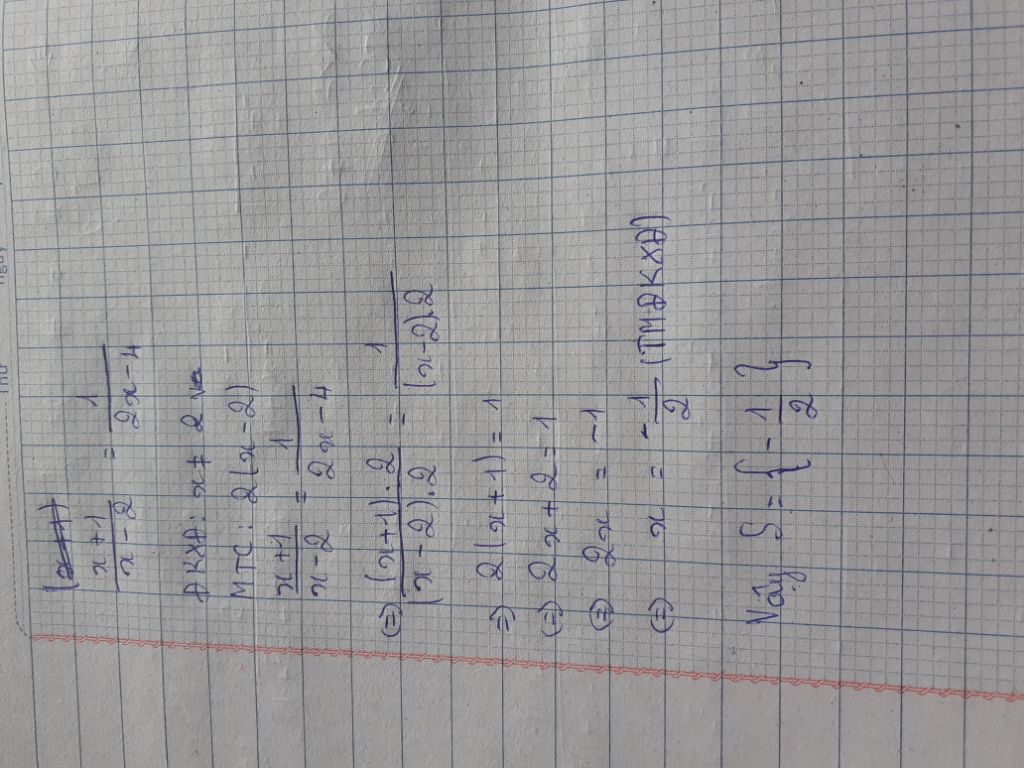 x+1/x-2 = 1/2x-4
ĐKXĐ: x ≠ 2 và
MTC: 2(x-2)
x+1/x-2 = 1/2x-4
(=) (x+1).2/(x-2).2 = 1/(x-2).2
=) 2(x+1)=1
(=) 2x+2=1
(=) 2x = -1
(=) x = -1/2 (TMĐKXĐ)
Vậy S={-1/2}